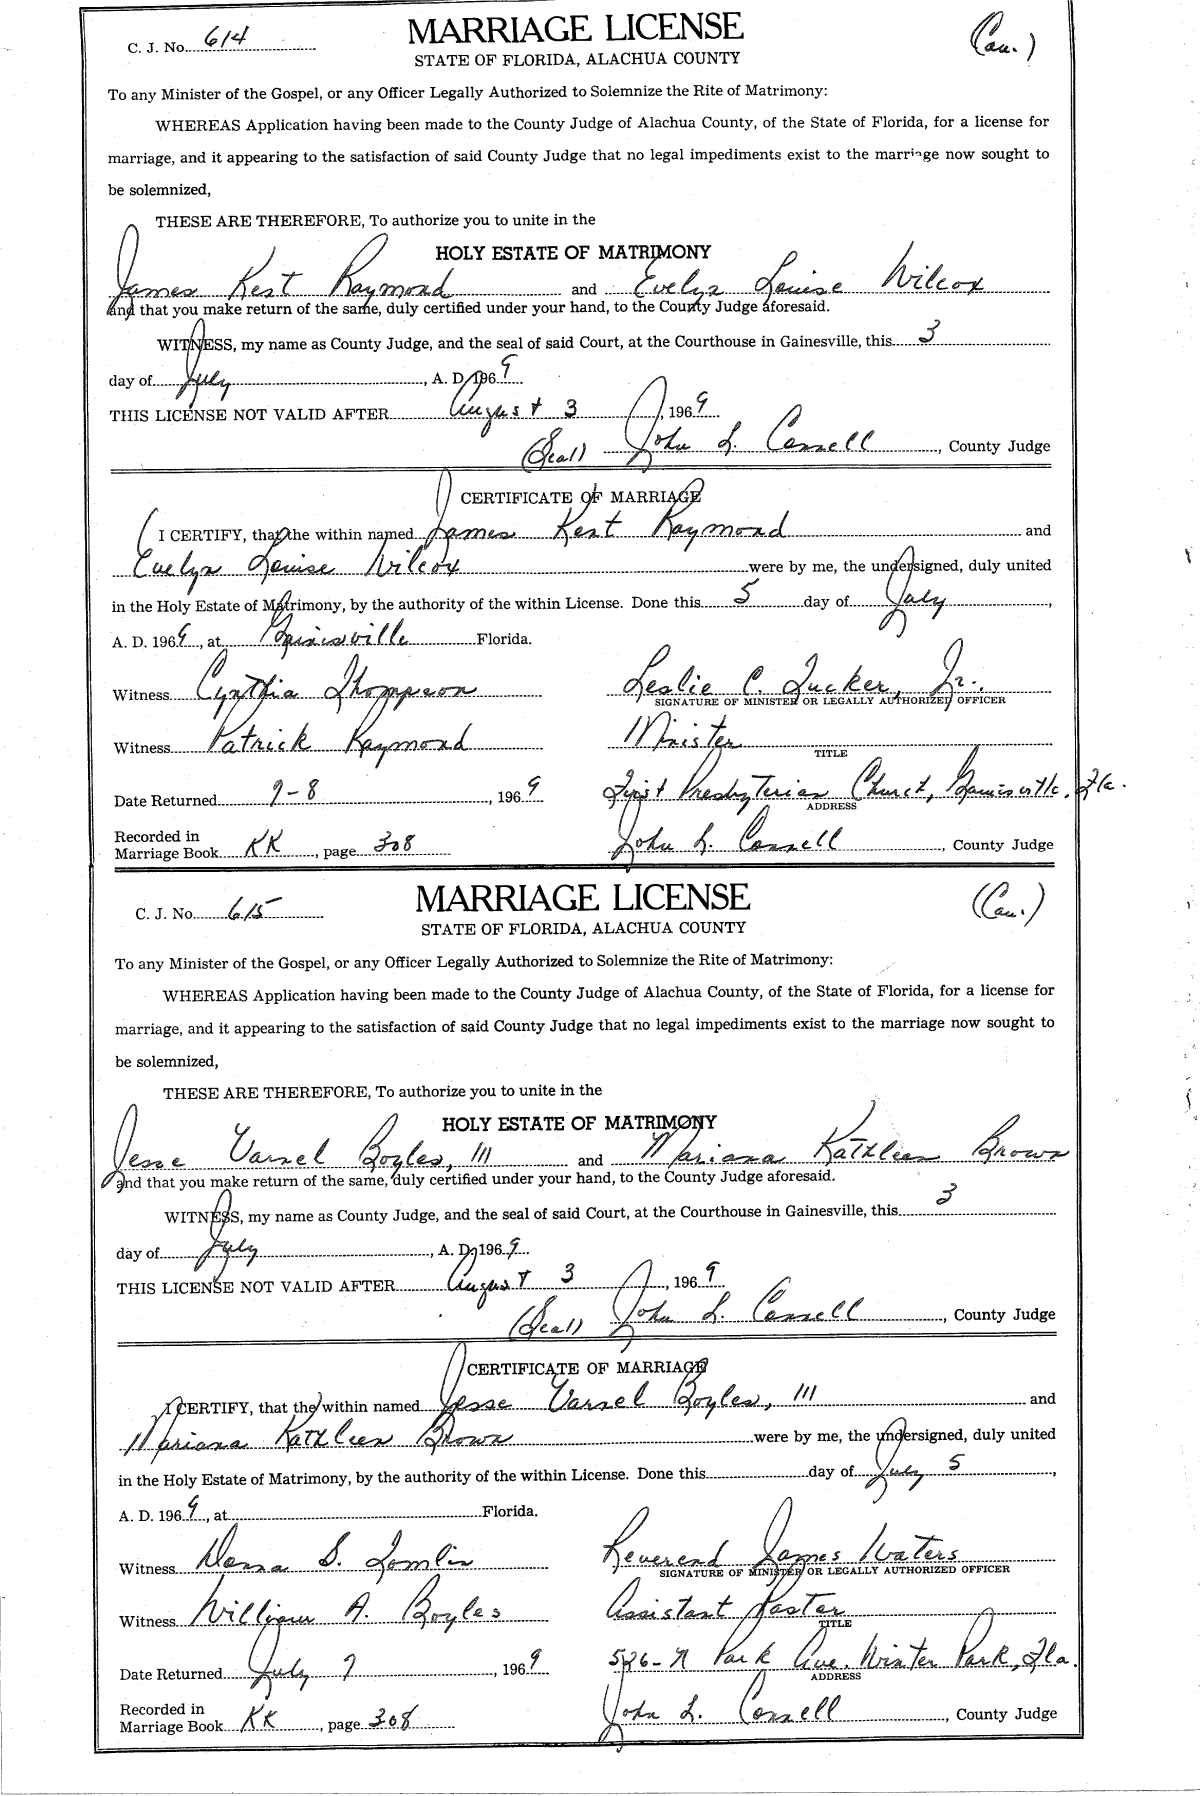 C. J. No. 614 MARRIAGE LICENSE (Cau.)
STATE OF FLORIDA, ALACHUA COUNTY
To any Minister of the Gospel, or any Officer Legally Authorized to Solemnize the Rite of Matrimony:
WHEREAS Application having been made to the County Judge of Alachua County, of the State of Florida, for a license for
marriage, and it appearing to the satisfaction of said County Judge that no legal impediments exist to the marriage now sought to
be solemnized,
THESE ARE THEREFORE, To authorize you to unite in the
HOLY ESTATE OF MATRIMONY
James Kent Raymond and Evelyn Louise Wilcox
and that you make return of the same, duly certified under your hand, to the County Judge aforesaid.
WITNESS, my name as County Judge, and the seal of said Court, at the Courthouse in Gainesville, this 3
day of July, A. D. 1969
THIS LICENSE NOT VALID AFTER August 3, 1969
(Seal) John L. Connell, County Judge
CERTIFICATE OF MARRIAGE
I CERTIFY, that the within named James Kent Raymond and
Evelyn Louise Wilcox were by me, the undersigned, duly united
in the Holy Estate of Matrimony, by the authority of the within License. Done this 5 day of July,
A. D. 1969, at Gainesville Florida.
Witness Cynthia Thompson Leslie C. Tucker, Jr.
SIGNATURE OF MINISTER OR LEGALLY AUTHORIZED OFFICER
Witness Patrick Raymond Minister
TITLE
Date Returned 7-8, 1969 First Presbyterian Church, Gainesville, Fla.
ADDRESS
Recorded in
Marriage Book KK, page 308 John L. Connell, County Judge
C. J. No. 615 MARRIAGE LICENSE (Cau.)
STATE OF FLORIDA, ALACHUA COUNTY
To any Minister of the Gospel, or any Officer Legally Authorized to Solemnize the Rite of Matrimony:
WHEREAS Application having been made to the County Judge of Alachua County, of the State of Florida, for a license for
marriage, and it appearing to the satisfaction of said County Judge that no legal impediments exist to the marriage now sought to
be solemnized,
THESE ARE THEREFORE, To authorize you to unite in the
HOLY ESTATE OF MATRIMONY
Jesse Varnel Boyles, III and Mariana Kathleen Brown
and that you make return of the same, duly certified under your hand, to the County Judge aforesaid.
WITNESS, my name as County Judge, and the seal of said Court, at the Courthouse in Gainesville, this 3
day of July, A. D. 1969
THIS LICENSE NOT VALID AFTER August 3, 1969
(Seal) John L. Connell, County Judge
CERTIFICATE OF MARRIAGE
I CERTIFY, that the within named Jesse Varnel Boyles, III and
Mariana Kathleen Brown were by me, the undersigned, duly united
in the Holy Estate of Matrimony, by the authority of the within License. Done this day of July 5,
A. D. 1969, at Florida.
Witness Donna S. Tomlin Reverend James Waters
SIGNATURE OF MINISTER OR LEGALLY AUTHORIZED OFFICER
Witness William A. Boyles Assistant Pastor
TITLE
Date Returned July 7, 1969 526-N Park Ave. Winter Park, Fla.
ADDRESS
Recorded in
Marriage Book KK, page 308 John L. Connell, County Judge